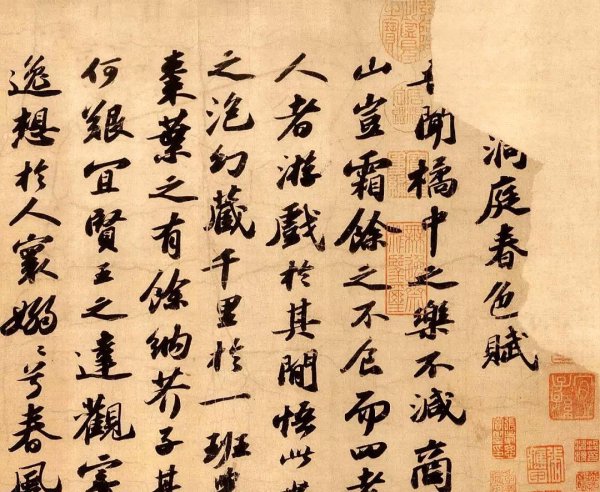 洞庭春色賦
聞橘中之樂不減商
山豈霜餘之不食而四老
人者游戲於其間悟此
之泡幻藏千里於一班
棗葉之有餘納芥子其
何艱宜賢王之達觀寄
逸想於人寰嫋〻兮春風